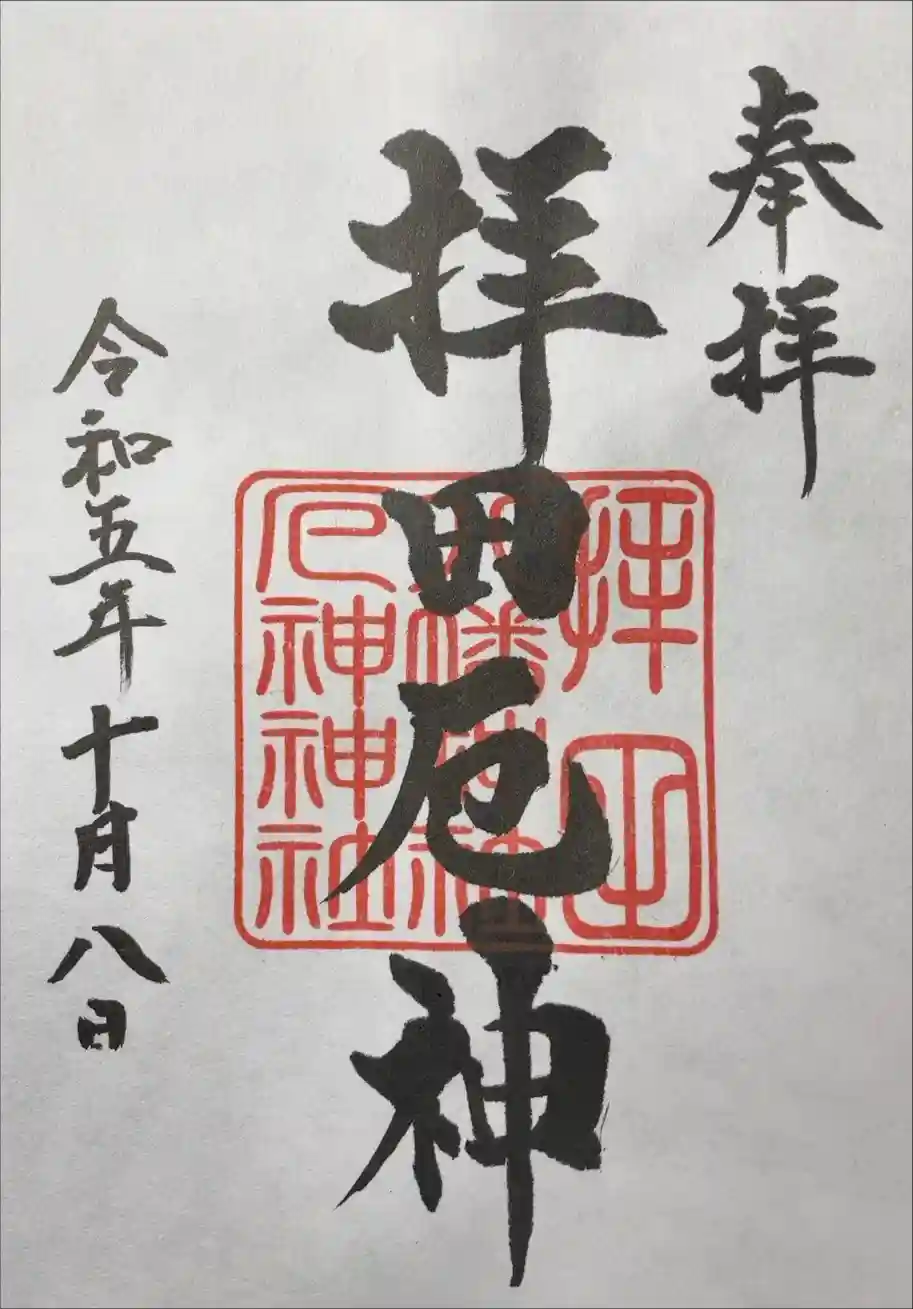 奉拝
拝田厄神
拝田
八幡神社
厄神神社
令和五年十月八日